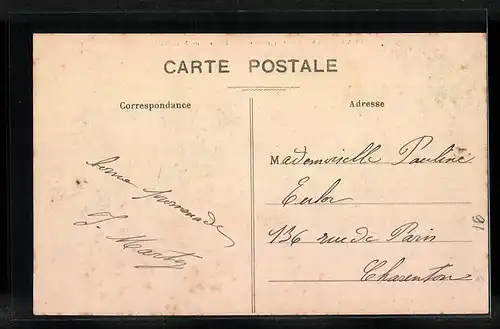 CARTE POSTALE
Correspondance
Adresse
bonne promenade
J. Martz
Mademoiselle Pauline
136 rue de Paris
Charenton
16